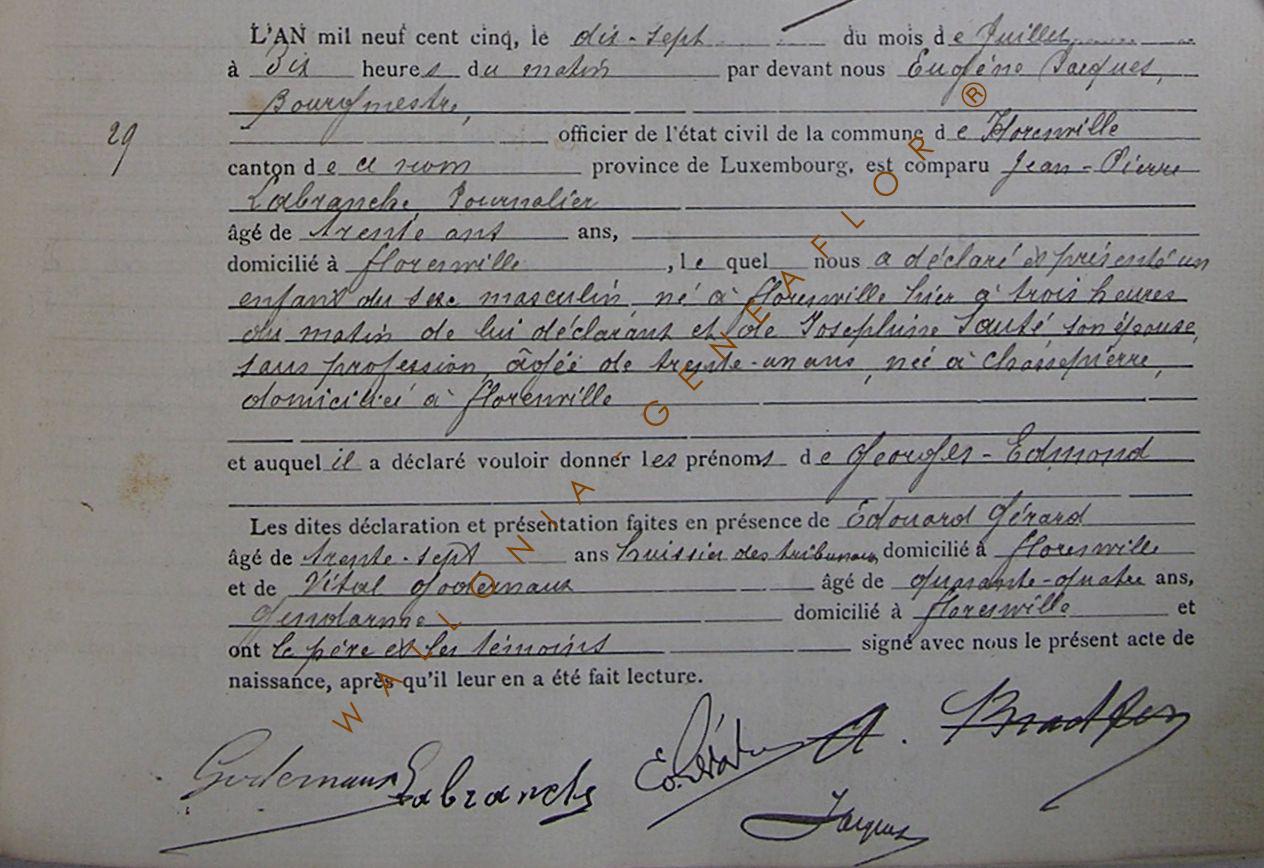 L'AN mil neuf cent cinq, le dix-sept du mois de Juillet
à Dix heures du matin par devant nous Eugène Jacques,
Bourgmestre,
29
officier de l'état civil de la commune de Florenville
canton de ce nom province de Luxembourg, est comparu Jean-Pierre
Labranche Journalier
âgé de trente ans ans,
domicilié à florenville, lequel nous a déclaré et présenté un
enfant du sexe masculin né à florenville hier à trois heures
du matin de lui déclarant et de Joséphine Sauté son épouse,
sans profession, âgée de trente-un ans, née à Chassepierre,
domiciliée à florenville
et auquel il a déclaré vouloir donner les prénoms de Georges-Edmond
Les dites déclaration et présentation faites en présence de Edouard Gérard
âgé de trente-sept ans huissier des tribunaux domicilié à florenville
et de Vital Godernaux âgé de quarante-quatre ans,
Gendarme domicilié à florenville et
ont le père et les témoins signé avec nous le présent acte de
naissance, après qu'il leur en a été fait lecture.
Godernaux Labranche Ed. Gérard
Jacques
WALLONIA - GENEAFLOR ®